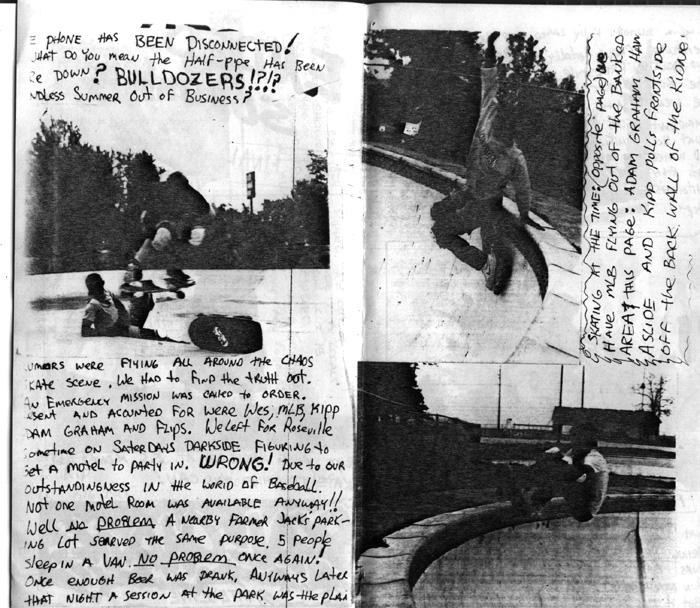 E PHONE HAS BEEN DISCONNECTED!
HAT DO YOU MEAN THE HALF-PIPE HAS BEEN
RE DOWN? BULLDOZERS!?!?
NDLESS SUMMER OUT OF BUSINESS?
UMORS WERE FLYING ALL AROUND THE CHAOS
KATE SCENE. WE HAD TO FIND THE TRUTH OUT.
AN EMERGENCY MISSION WAS CALLED TO ORDER.
SENT AND ACOUNTED FOR WERE WES, MLB, KIPP
DAM GRAHAM AND FLIPS. WE LEFT FOR ROSEVILLE
SOMETIME ON SATERDAYS DARKSIDE FIGURING TO
GET A MOTEL TO PARTY IN. WRONG! DUE TO OUR
OUTSTANDINGNESS IN THE WORLD OF BASEBALL.
NOT ONE MOTEL ROOM WAS AVAILABLE ANYWAY!!
WELL NO PROBLEM A NEARBY FARMER JACKS PARK-
ING LOT SERVED THE SAME PURPOSE. 5 PEOPLE
SLEEP IN A VAN. NO PROBLEM ONCE AGAIN!
ONCE ENOUGH BEER WAS DRANK, ANYWAYS LATER
THAT NIGHT A SESSION AT THE PARK WAS THE PLAN
SKATING AT THE TIME: OPPOSITE PAGE WE
HAVE MLB FLYING OUT OF THE BANKED
AREA! THIS PAGE: ADAM GRAHAM HAM
ASCIDE AND KIPP PULLS FRONTSIDE
OFF THE BACK WALL OF THE KIDNEY